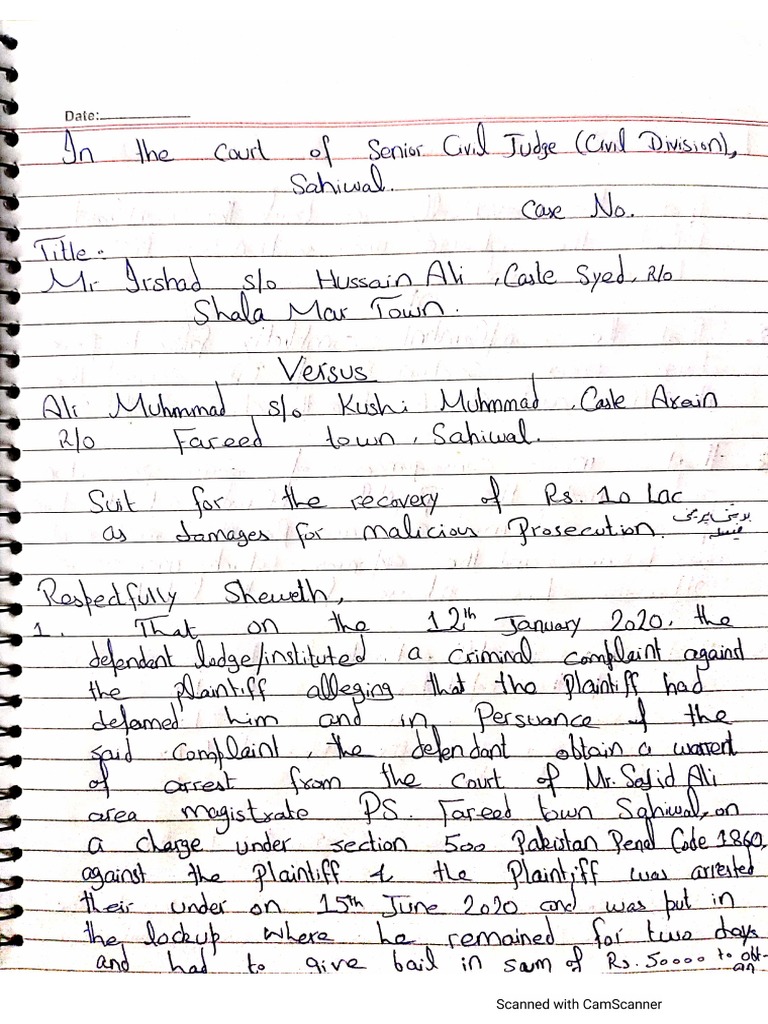 Date:
In the court of Senior Civil Judge (Civil Division),
Sahiwal.
Case No.
Title:
Mr Irshad s/o Hussain Ali, Caste Syed, R/o
Shala Mar Town.
Versus
Ali Muhmmad s/o Kushi Muhmmad, Caste Arain
R/o Fareed town, Sahiwal.
Suit for the recovery of Rs. 10 Lac
as damages for malicious Prosecution.
Respectfully Sheweth,
1. That on the 12th January 2020, the
defendant lodge/instituted a criminal complaint against
the plaintiff alleging that the Plaintiff had
defamed him and in Persuance of the
said complaint, the defendant obtain a warrent
of arrest from the court of Mr. Sajid Ali
area magistrate PS. Fareed town Sahiwal, on
a charge under section 500 Pakistan Penal Code 1860,
against the Plaintiff & the Plaintiff was arrested
their under on 15th June 2020 and was put in
the lockup where he remained for two days
and had to give bail in sum of Rs. 50000 to obt-
an
Scanned with CamScanner